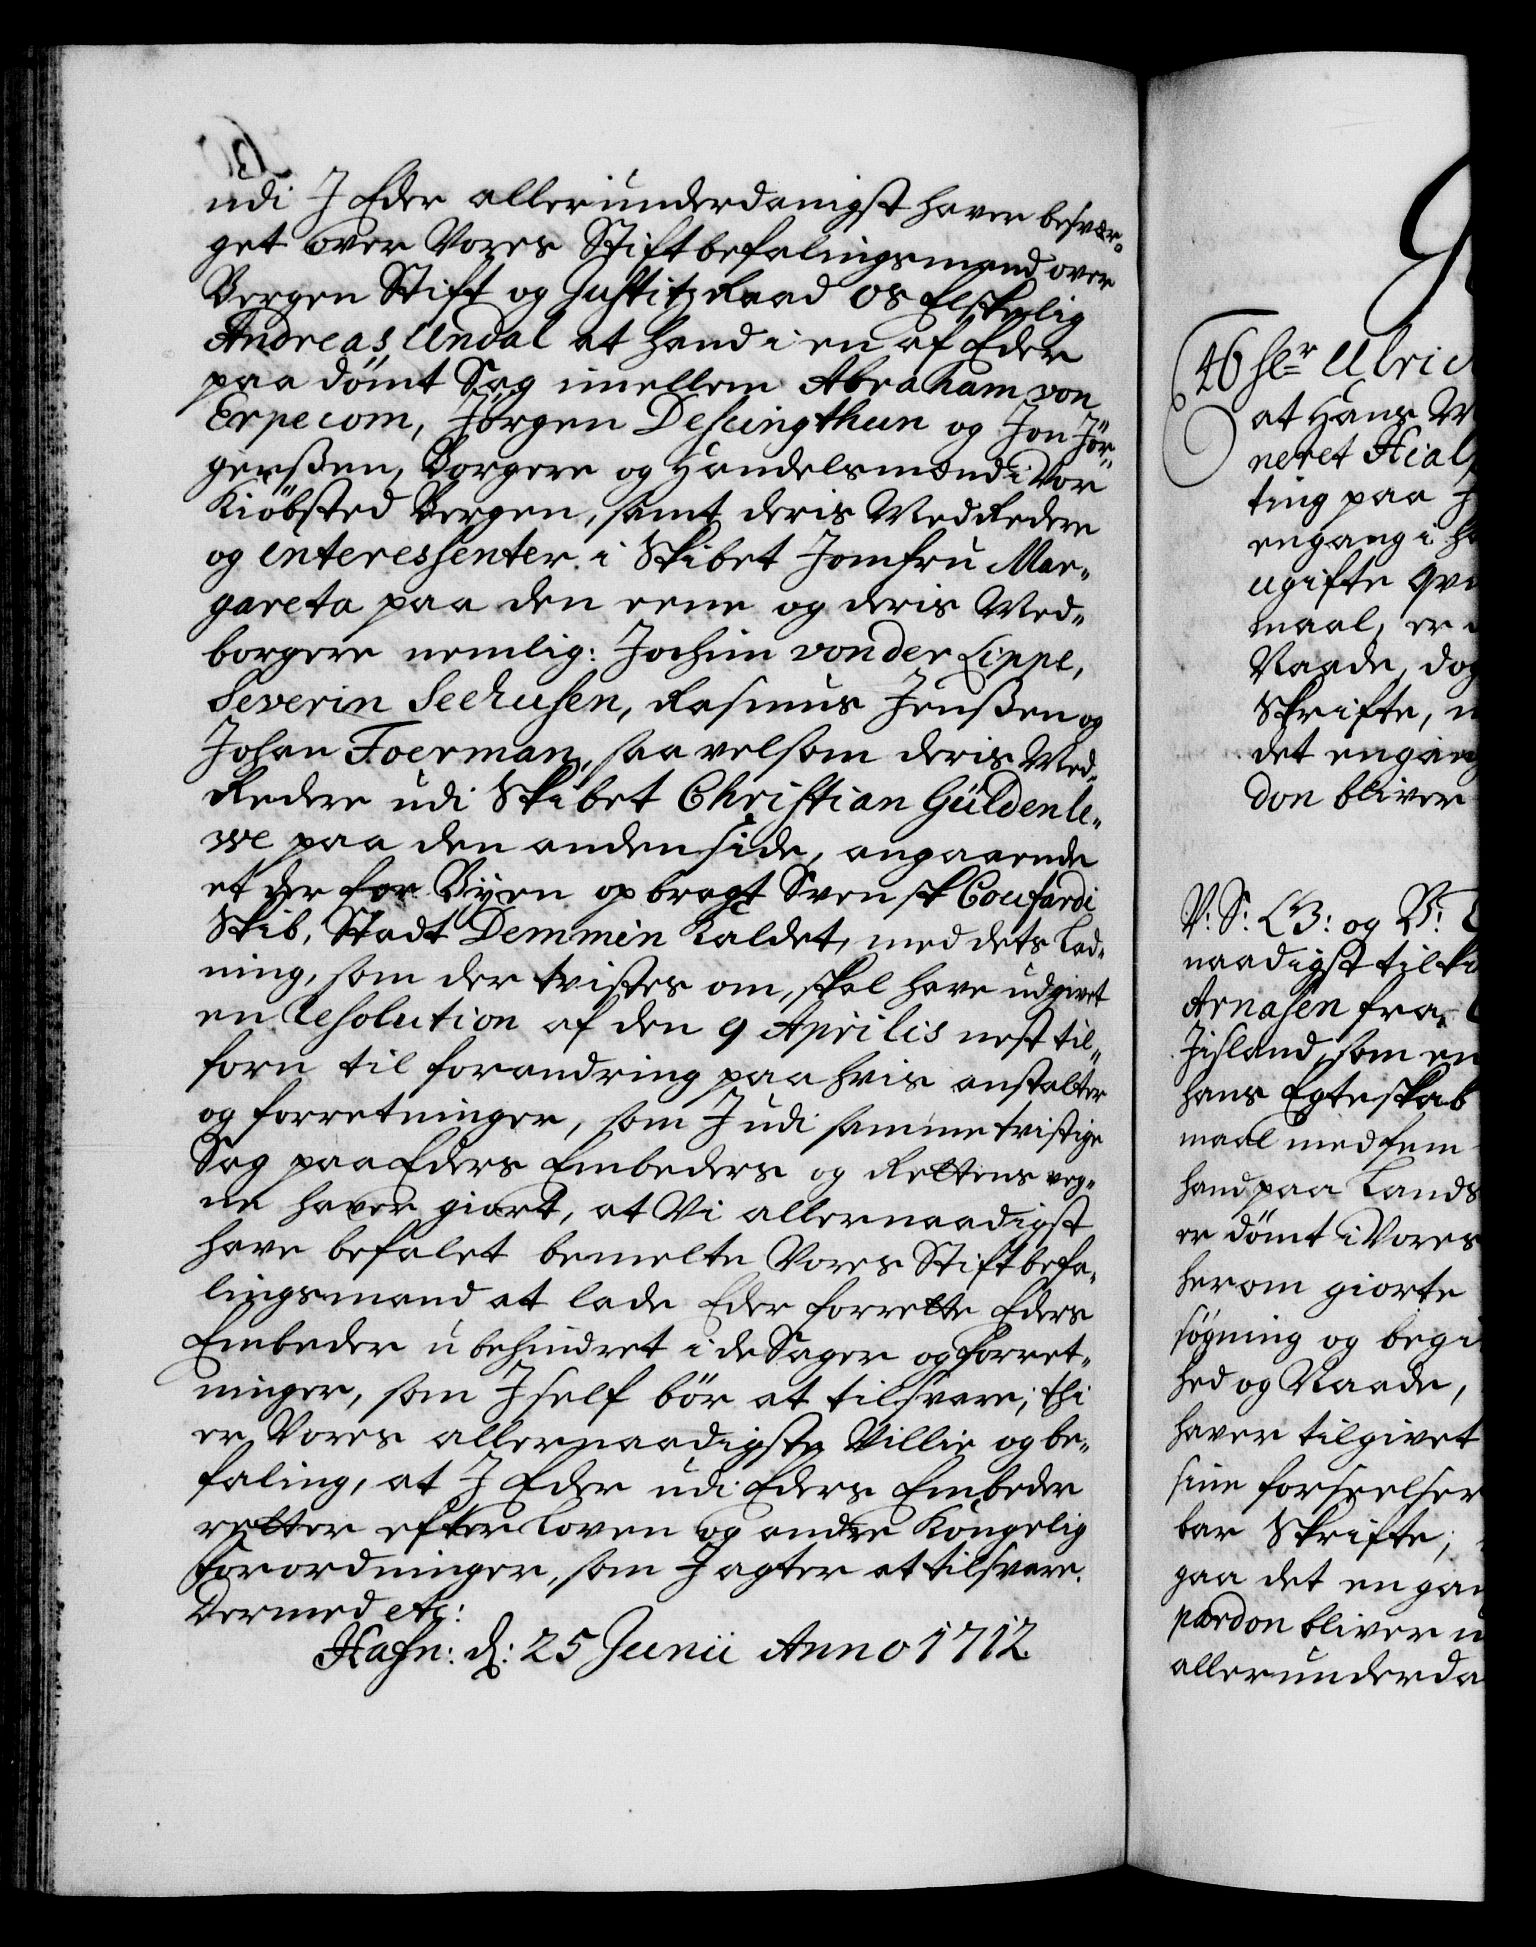 udi J Eder allerunderdanigst haver besvær-
get over Vores Stiftbefalingsmand over
Bergen Stift og Justitz Raad os Elskelig
Andreas Undal at hand i en af Eder
paa dömt Sag imellem Abraham von
Erpecom, Jörgen Desingthun og Jon Jör-
gensßen, Borgere og Handelsmænd i Vor
Kiöbsted Bergen, samt deris Med Redere
og interessenter i Skibet Jomfru Mar-
gareta paa den eene og deris Med-
borgere nemlig: Jochim von der Lippe,
Severin Seehusen, Rasmus Jensßen og
Johan Foerman, saavelsom deris Med-
Redere udi Skibet Christian Güldenle-
we paa den anden side, angaaende
et der for Byen opbragt Svensk Coufardi
Skib, Stadt Demmin kaldet, med dets Lad-
ning, som der tvistes om, skal have udgivet
en Resolution af den 9 Aprilis nest til-
forn til forandring paa hvis anstalter
og forretninger, som J udi samme tvistige
Sag paa Eders Embeders og Rettens veg-
ne haver giort, at Vi allernaadigst
have befalet bemelte Vores Stiftbefa-
lingsmand at lade Eder forrette Eders
Embeder ubehindret i de Sager og forret-
ninger, som J self bör at tilsvare; thi
er Vores allernaadigste Villie og be-
faling, at J Eder udi Eders Embeder
retter efter Loven og andre Kongelig
Forordninger, som J agter at tilsvare.
Dermed etc:
Hafn: d: 25 Junii Anno 1712
46 Hr Ulric
at Hans M
neret Hial
ting paa
engang i
ugifte Qvi
maal, er
Naade, dog
Skrifte,
det engang
don bliver
V: S: G: og V:
naadigst tilk
Arnasen fra
Jisland, som en
hans Egteskab
maal med fem
hand paa Lands
er dömt i Vores
herom giorte
sögning og begi
hed og Naade,
haver tilgivet
sine forseelser
bar Skrifte;
gaa det engan
pardon bliver
allerunderda